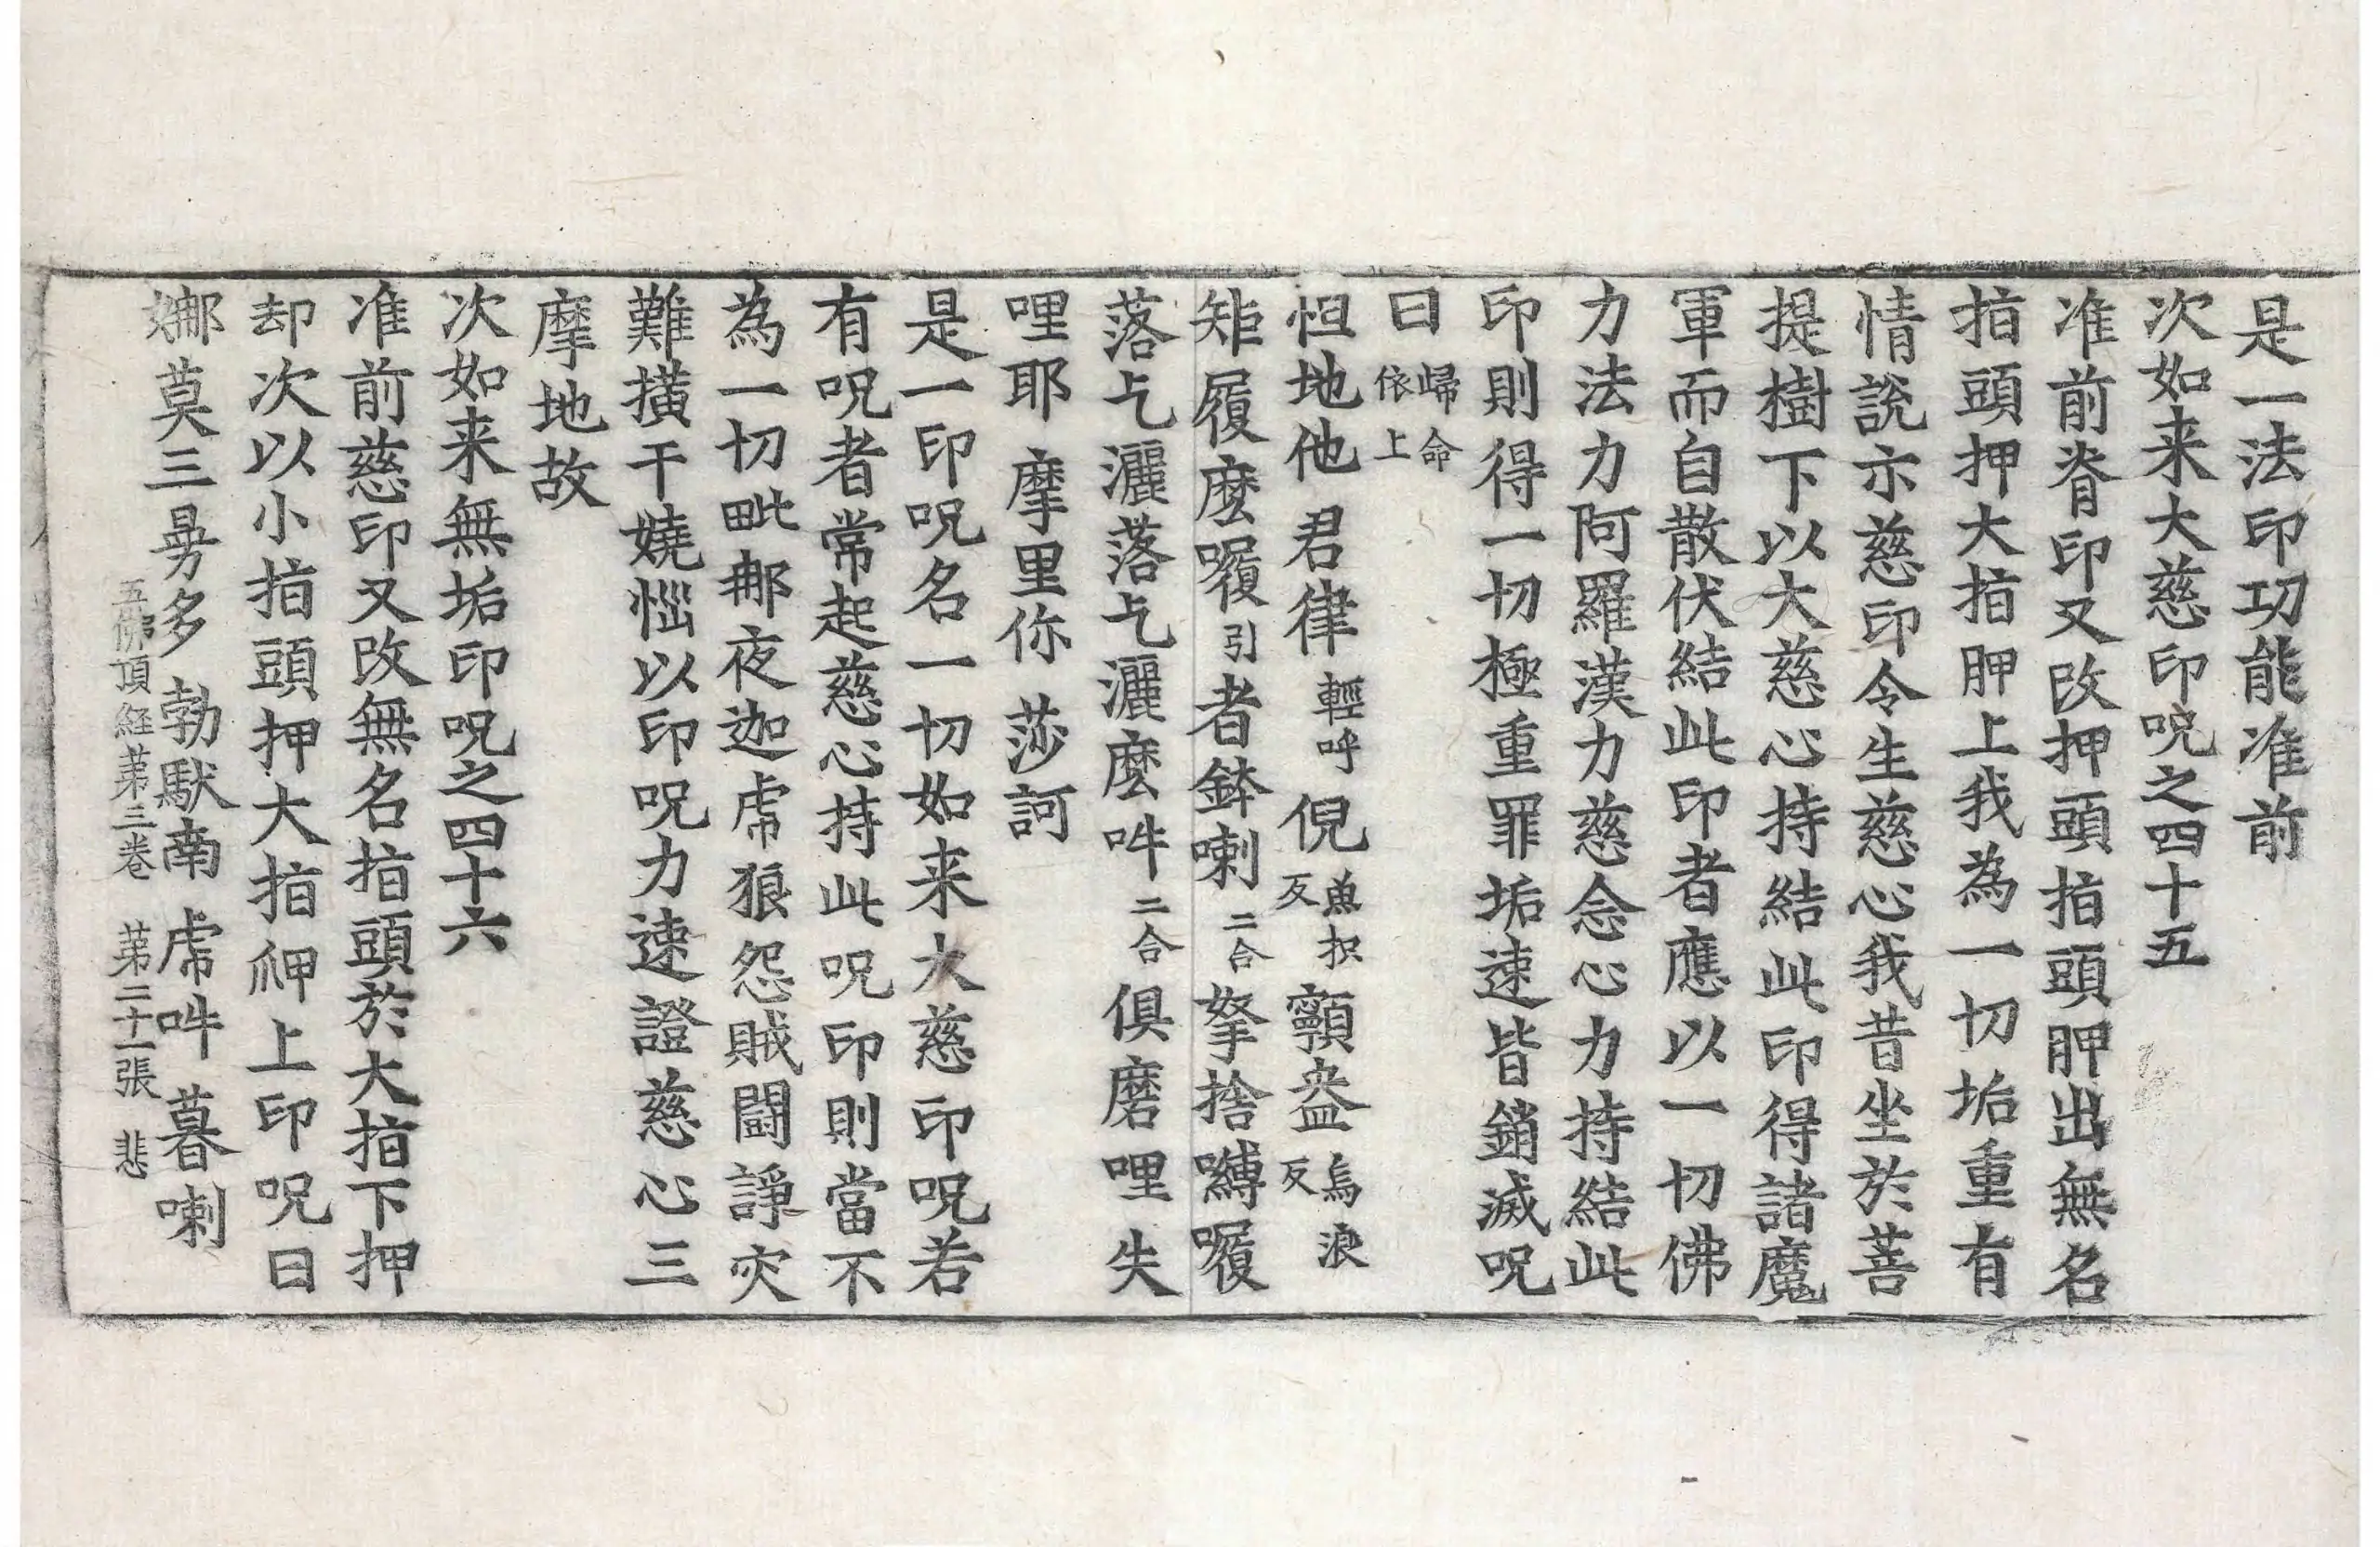 是一法印功能准前
次如来大慈印呪之四十五
准前脊印又改押頭指頭胛出無名
指頭押大指胛上我為一切垢重有
情說示慈印令生慈心我昔坐於菩
提樹下以大慈心持結此印得諸魔
軍而自散伏結此印者應以一切佛
力法力阿羅漢力慈念心力持結此
印則得一切極重罪垢速皆銷滅呪
曰歸命依上
怛地他君律輕呼倪魚枳反顙盎烏浪反
矩履麽㘑引者鉢喇二合拏捨嚩㘑
落乞灑落乞灑麽吽二合俱磨哩失
哩耶摩里你莎訶
是一印呪名一切如来大慈印呪若
有呪者常起慈心持此呪印則當不
為一切毗那夜迦虎狼怨賊闘諍灾
難撗干嬈惱以印呪力速證慈心三
摩地故
次如来無垢印呪之四十六
准前慈印又改無名指頭於大指下押
却次以小指頭押大指胛上印呪曰
娜莫三曼多勃馱南虎吽暮喇
五佛頂経第三卷 第二十一張 悲